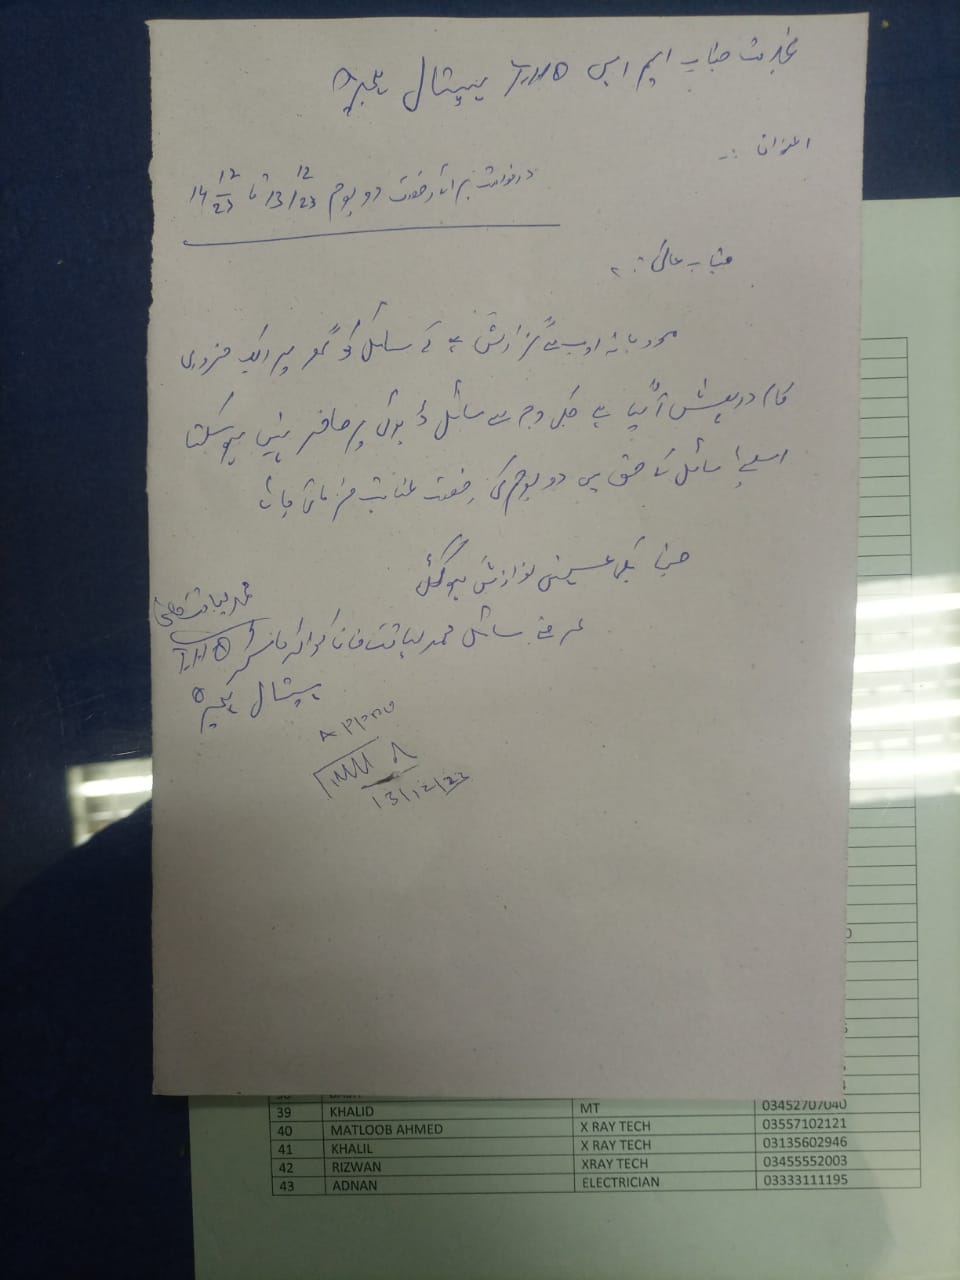 بخدمت جناب ایم ایس THQ ہسپتال
عنوان :-
درخواست برائے رخصت دو یوم 13/12/23 تا 14/12/23
جناب عالی :-
مودبانہ ادب سے گزارش ہے کے سائل کو گھر پر ایک ضروری
کام درپیش آ گیا ہے جسکی وجہ سے سائل ڈیوٹی پر حاضر نہیں ہو سکتا
اسلیے سائل کے حق میں دو یوم کی رخصت عنایت فرمائی جائے
جناب کی عین نوازش ہو گی
عرضے سائل محمد لیاقت خان THQ
محمد لیاقت خان
ہسپتال
13/12/23
39 KHALID MT 03452707040
40 MATLOOB AHMED X RAY TECH 03557102121
41 KHALIL X RAY TECH 03135602946
42 RIZWAN XRAY TECH 03455552003
43 ADNAN ELECTRICIAN 03333111195